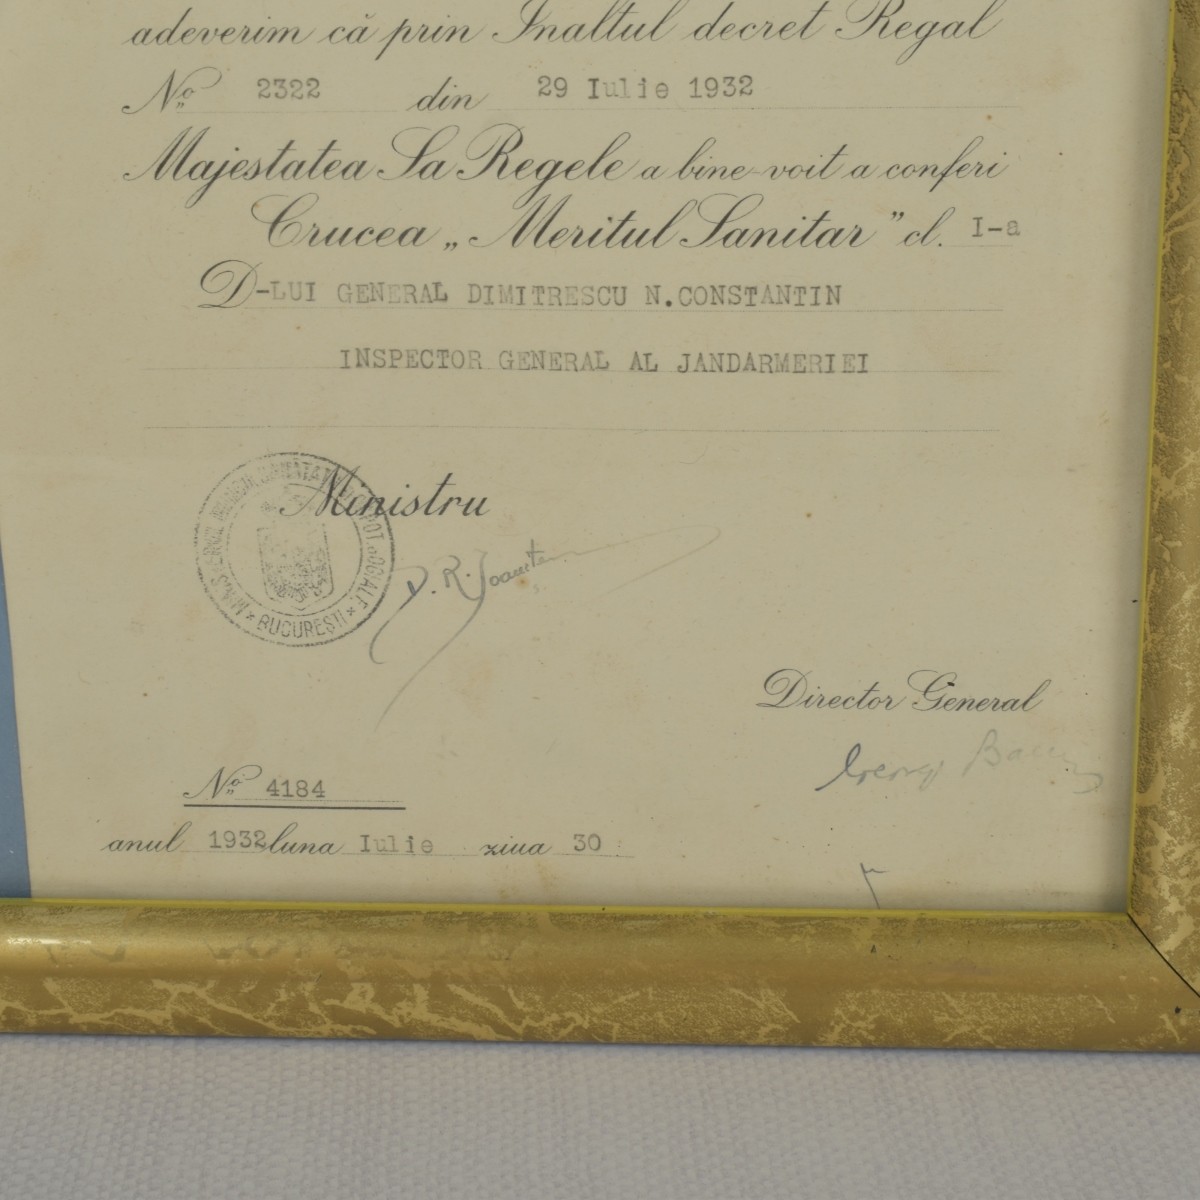 adeverim că prin Inaltul decret Regal
No 2322 din 29 Iulie 1932
Majestatea Sa Regele a bine-voit a conferi
Crucea „Meritul Sanitar” cl. I-a
D-LUI GENERAL DIMITRESCU N.CONSTANTIN
INSPECTOR GENERAL AL JANDARMERIEI
Ministru
BUCUREȘTI
D. R. Ioaniț
Director General
No 4184
anul 1932 luna Iulie ziua 30